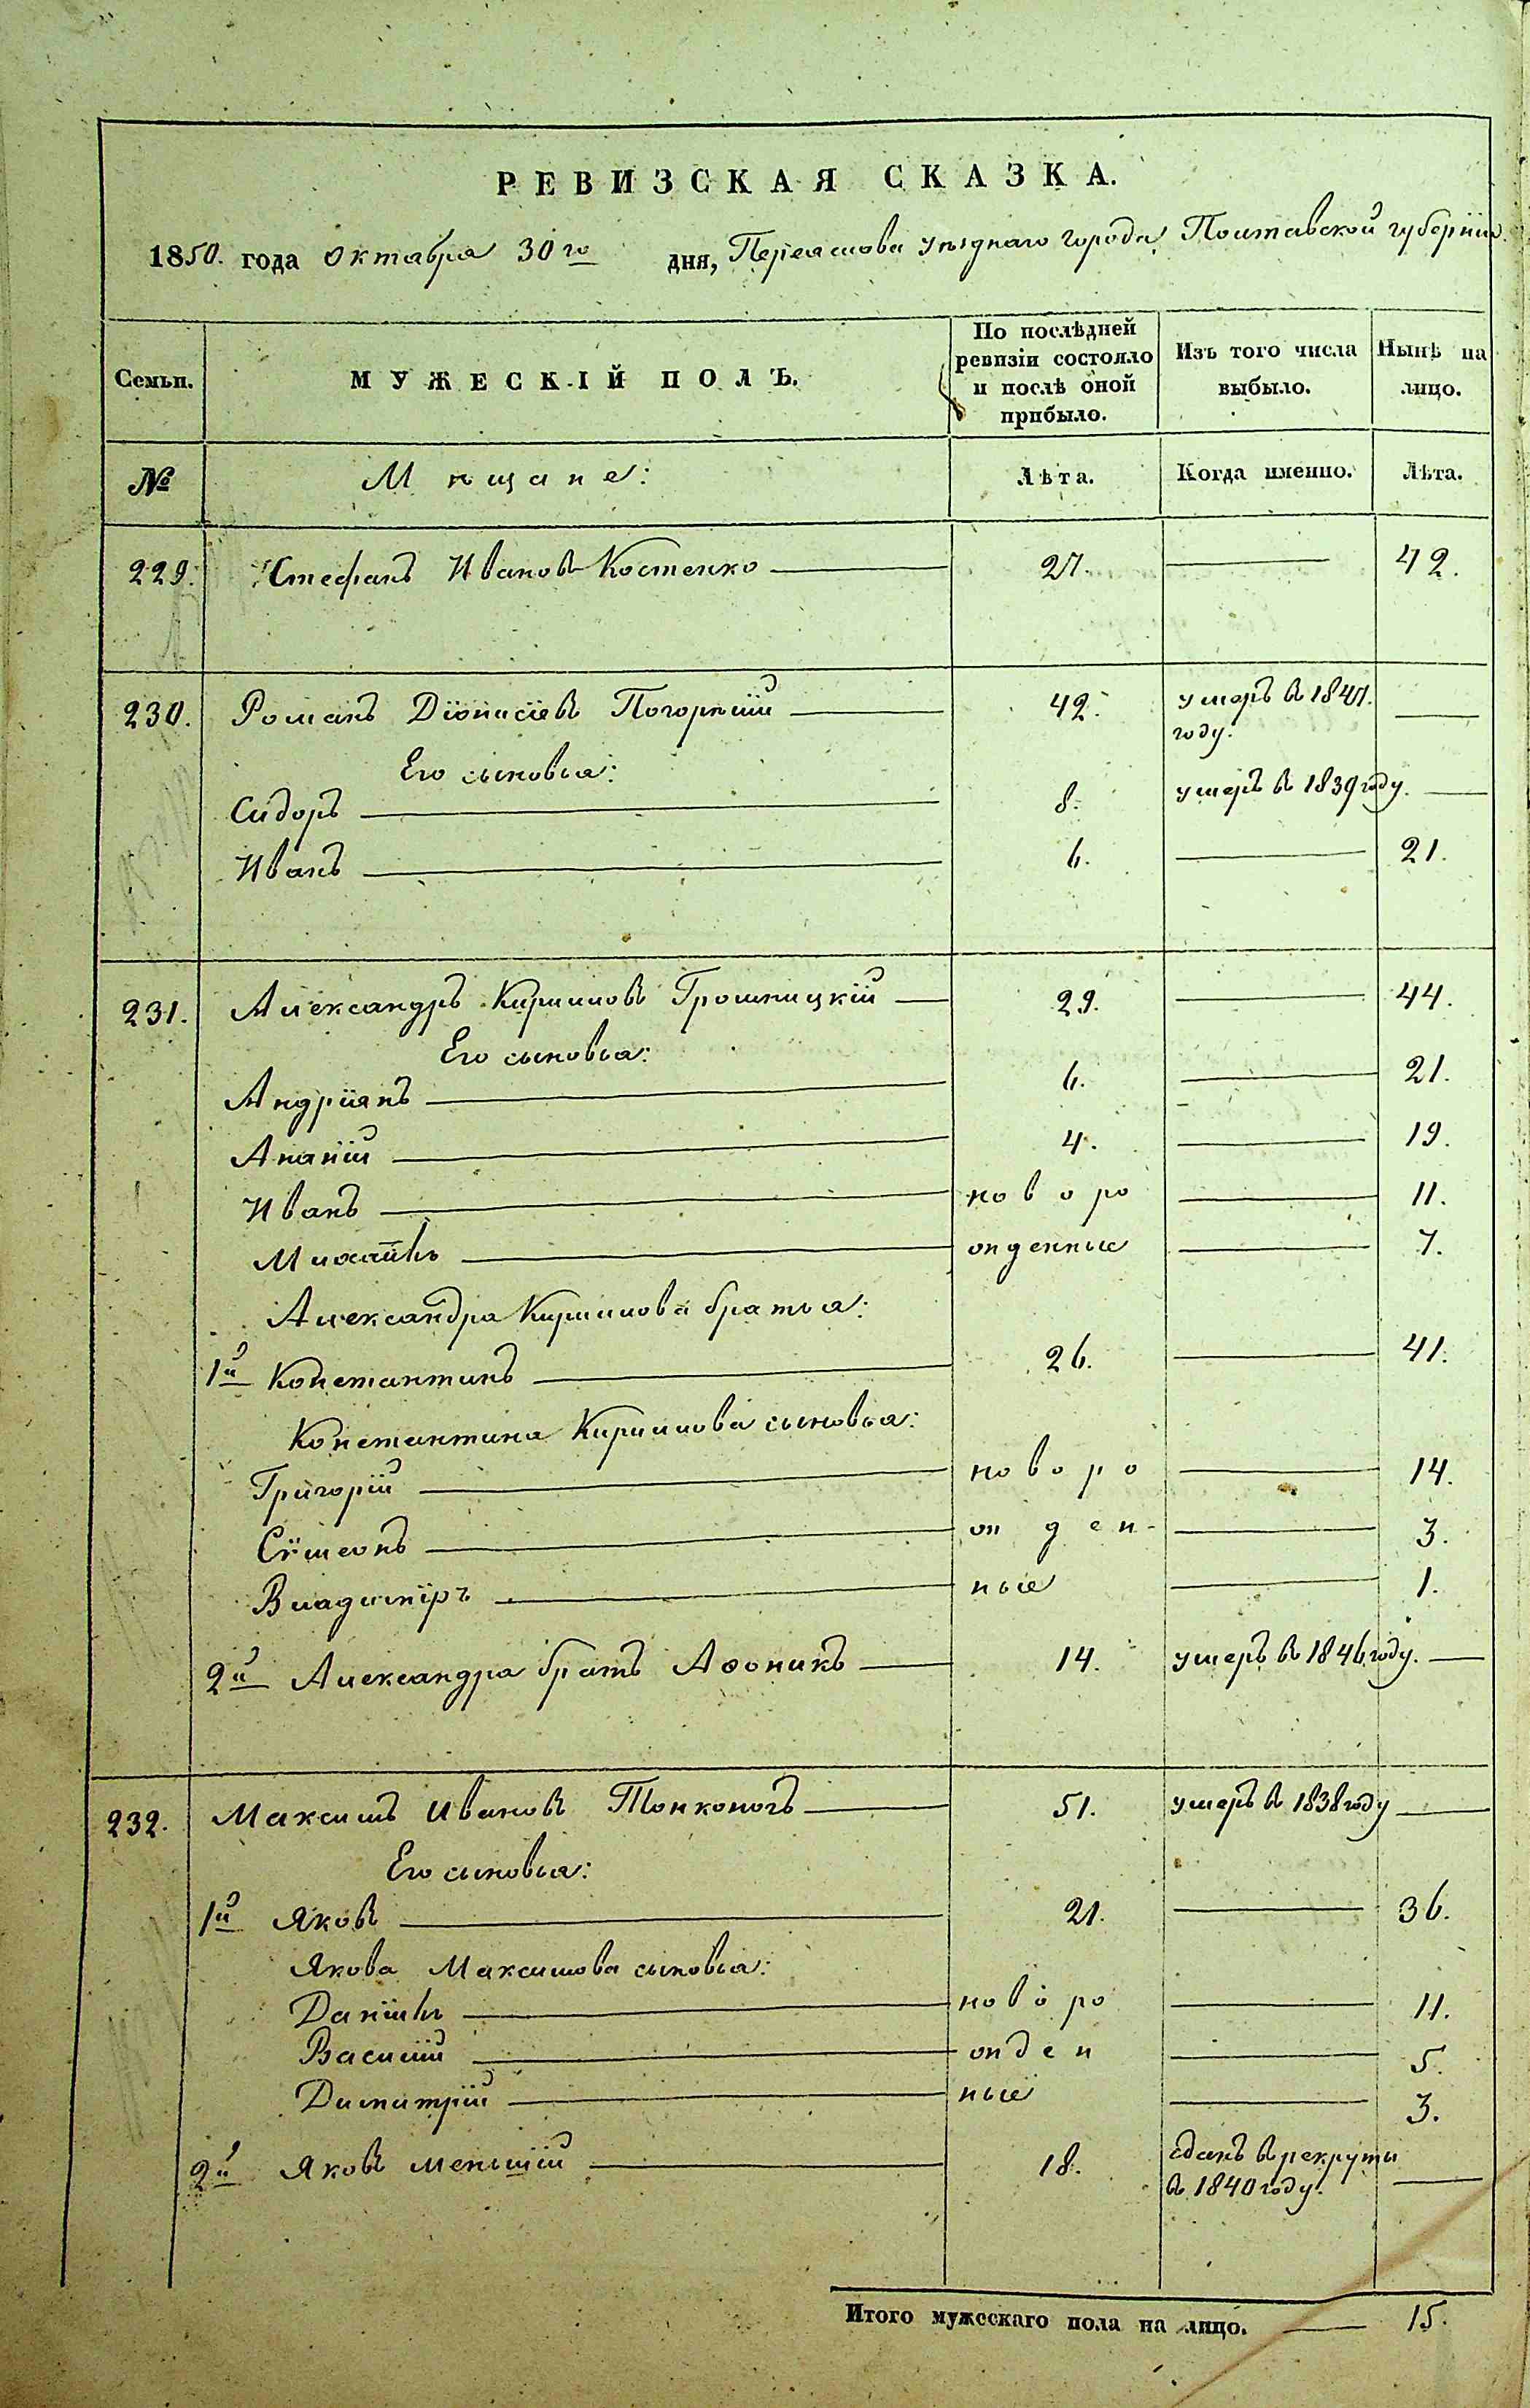 РЕВИЗСКАЯ СКАЗКА.
1850. года Октября 30го дня, Переяслова уѣзднаго города Полтавской губерніи.
Семьи. МУЖЕСКІЙ ПОЛЪ. По послѣдней ревизіи состояло и послѣ оной прибыло. Изъ того числа выбыло. Нынѣ на лицо.
№ Мѣщане: Лѣта. Когда именно. Лѣта.
229. Стефанъ Ивановъ Костенко 27. 42.
230. Романъ Діонисіевъ Погорѣлій 42. умеръ въ 1847. году.
Его сыновья:
Сидоръ 8. умеръ въ 1839 году.
Иванъ 6. 21.
231. Александръ Кириловъ Грошницкій 29. 44.
Его сыновья:
Андріянъ 6. 21.
Ананій 4. 19.
Иванъ новоро 11.
Михаилъ жденные 7.
Александра Кирилова братья:
1й Константинъ 26. 41.
Константина Кирилова сыновья:
Григорій новоро 14.
Сѵмеонъ жден- 3.
Владиміръ ные 1.
2й Александра братъ Афоникъ 14. умеръ въ 1846 году.
232. Максимъ Ивановъ Тонконогъ 51. умеръ въ 1838 году
Его сыновья:
1й Яковъ 21. 36.
Якова Максимова сыновья:
Даніилъ новоро 11.
Василій жден 5.
Димитрій ные 3.
2й Яковъ меньшій 18. сданъ въ рекруты въ 1840 году.
Итого мужескаго пола на лицо. 15.